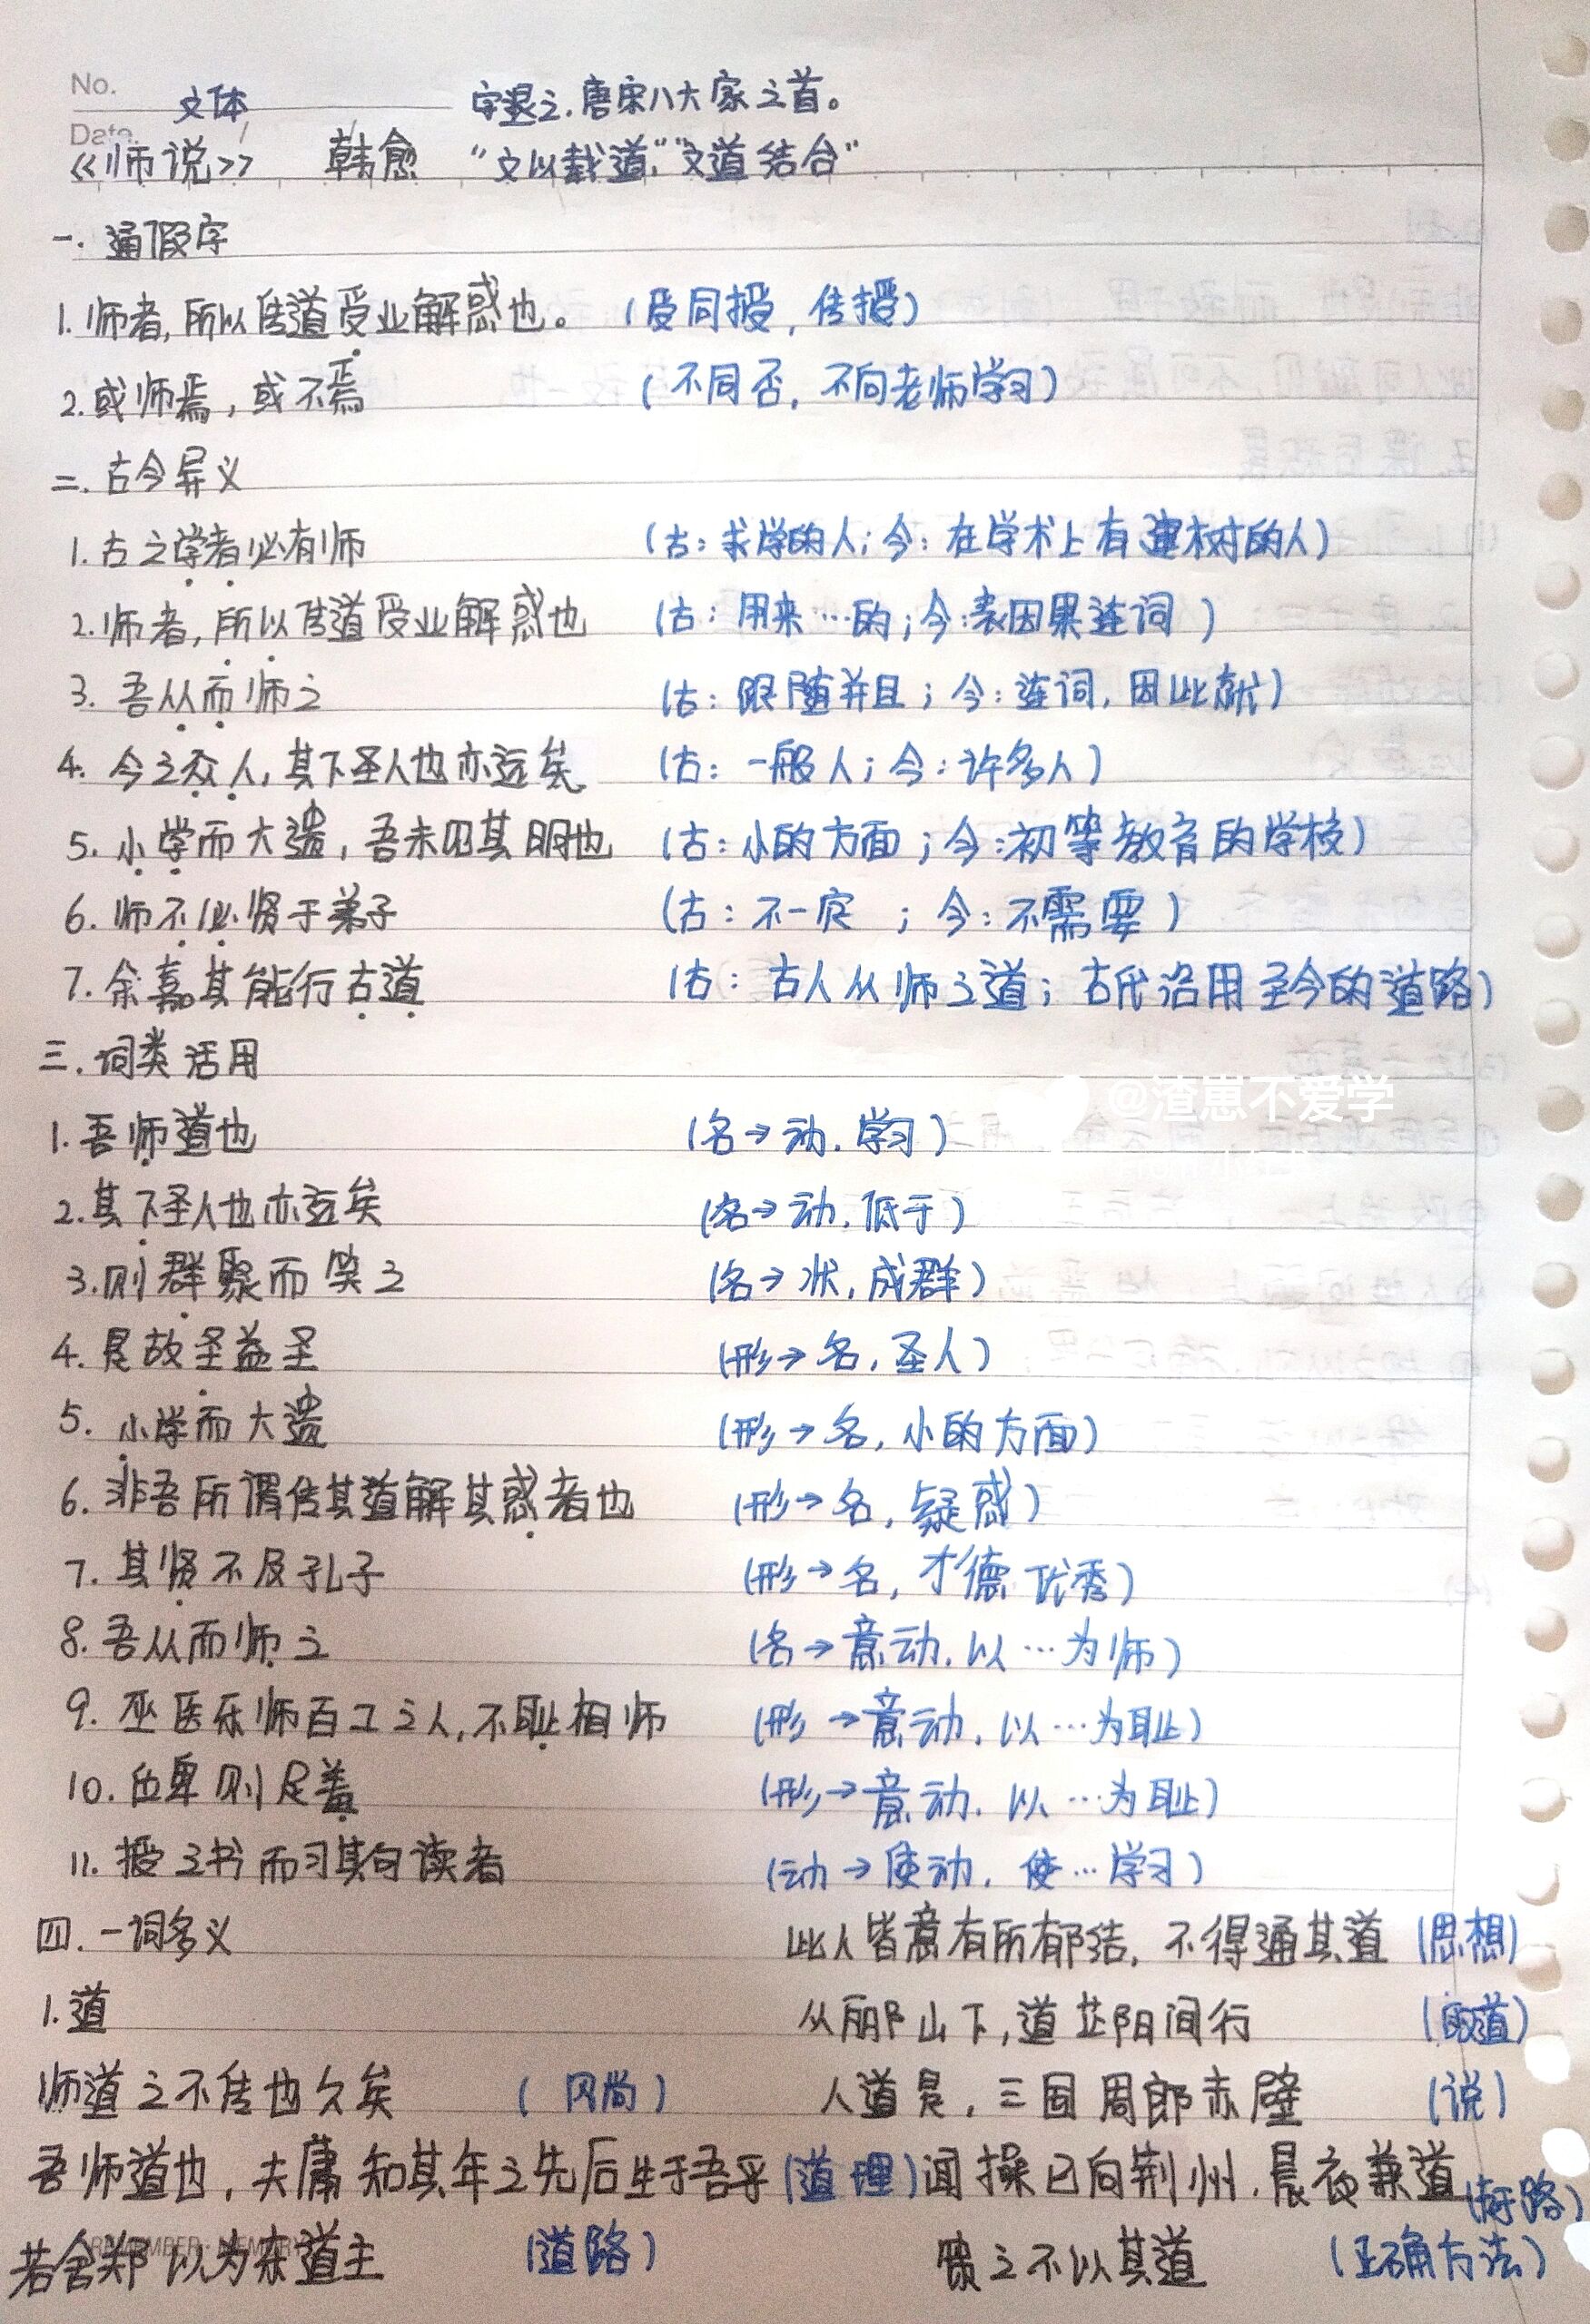 No.
文体
字退之,唐宋八大家之首。
Date
《师说》 韩愈 “文以载道,”“文道结合”
一. 通假字
1. 师者,所以传道受业解惑也。 (受同授,传授)
2. 或师焉,或不焉 (不同否,不向老师学习)
二. 古今异义
1. 古之学者必有师 (古:求学的人;今:在学术上有建树的人)
2. 师者,所以传道受业解惑也 (古:用来…的;今:表因果连词)
3. 吾从而师之 (古:跟随并且;今:连词,因此就)
4. 今之众人,其下圣人也亦远矣 (古:一般人;今:许多人)
5. 小学而大遗,吾未见其明也 (古:小的方面;今:初等教育的学校)
6. 师不必贤于弟子 (古:不一定;今:不需要)
7. 余嘉其能行古道 (古:古人从师之道;古代沿用至今的道路)
三. 词类活用
@渣崽不爱学
1. 吾师道也 (名→动.学习)
2. 其下圣人也亦远矣 (名→动.低于)
3. 则群聚而笑之 (名→状,成群)
4. 是故圣益圣 (形→名,圣人)
5. 小学而大遗 (形→名,小的方面)
6. 非吾所谓传其道解其惑者也 (形→名,疑惑)
7. 其贤不及孔子 (形→名,才德优秀)
8. 吾从而师之 (名→意动.以…为师)
9. 巫医乐师百工之人,不耻相师 (形→意动.以…为耻)
10. 位卑则足羞 (形→意动.以…为耻)
11. 授之书而习其句读者 (动→使动.使…学习)
四. 一词多义 此人皆意有所郁结,不得通其道 (思想)
1. 道 从郦山下,道芷阳间行 (取道)
师道之不传也久矣 (风尚) 人道是,三国周郎赤壁 (说)
吾师道也,夫庸知其年之先后生于吾乎 (道理) 闻操已向荆州.晨夜兼道 (路)
若舍郑以为东道主 (道路) 策之不以其道 (正确方法)